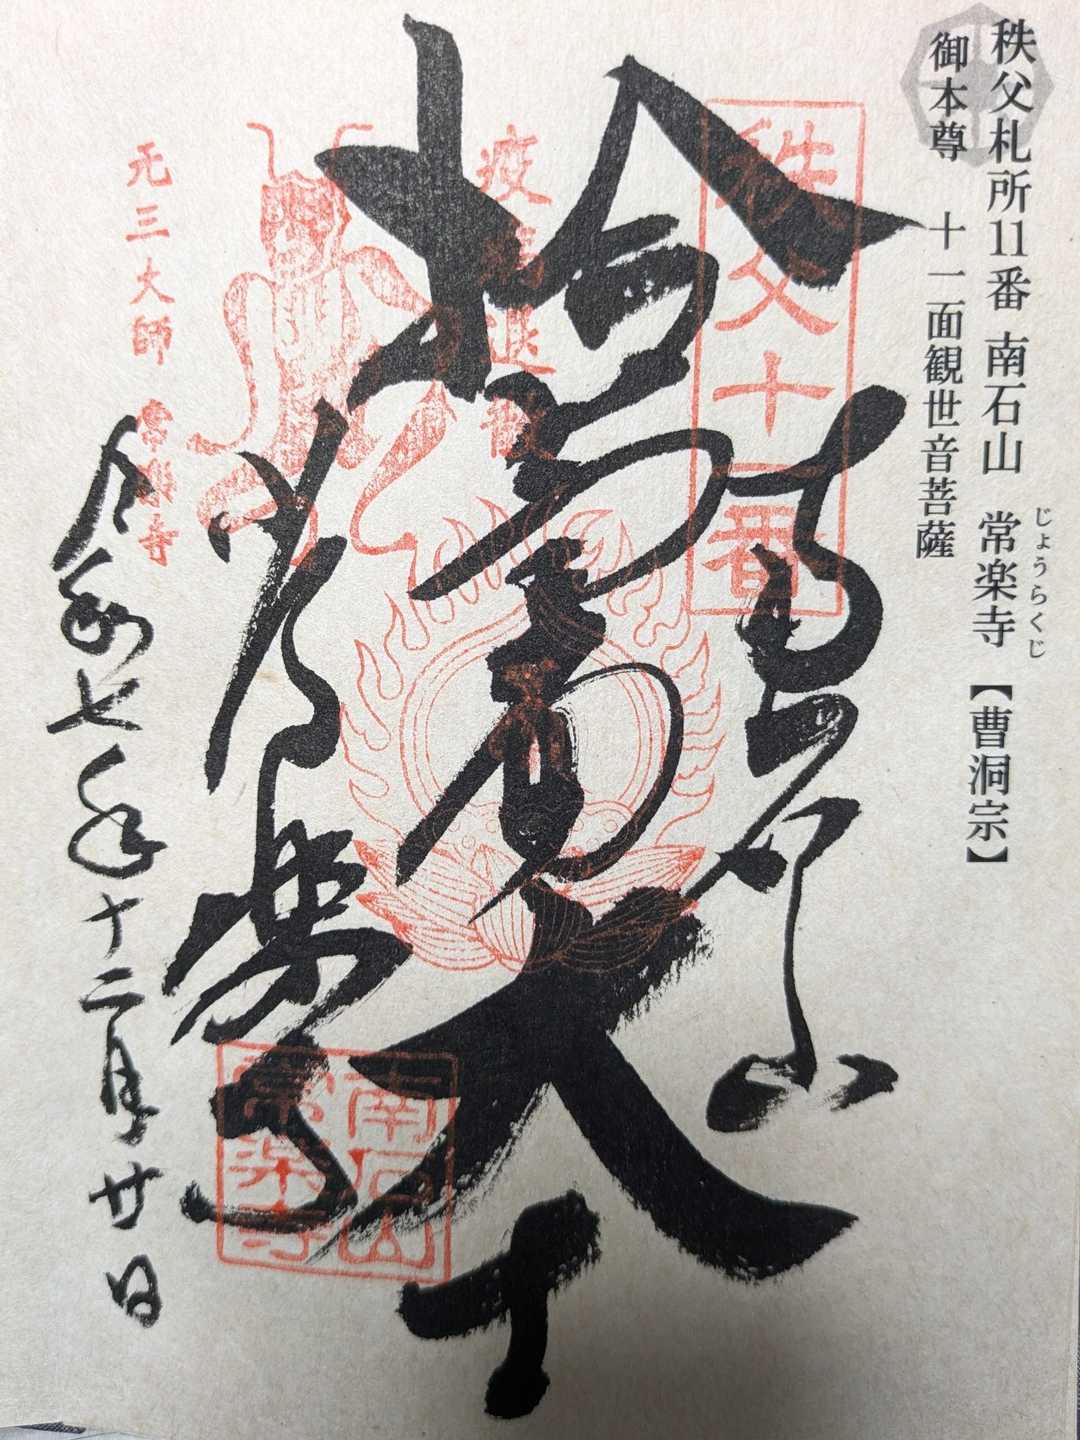 秩父札所11番 南石山 常楽寺【曹洞宗】
じょうらくじ
御本尊 十一面観世音菩薩
秩父十一番
南石山
疫病退散
元三大師 常楽寺
常楽寺
令和七年十二月廿日
南石山
常楽寺